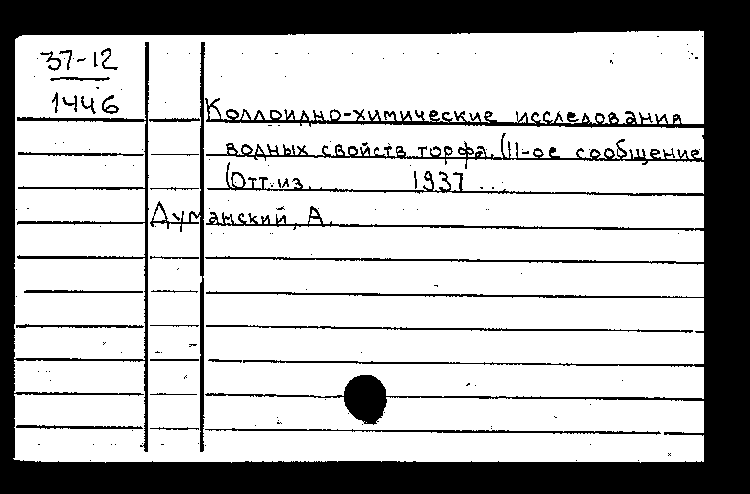 37-12
1446
Коллоидно-химические исследования
водных свойств торфа. (II-ое сообщение)
(Отт. из. 1937 ...
Думанский, А.